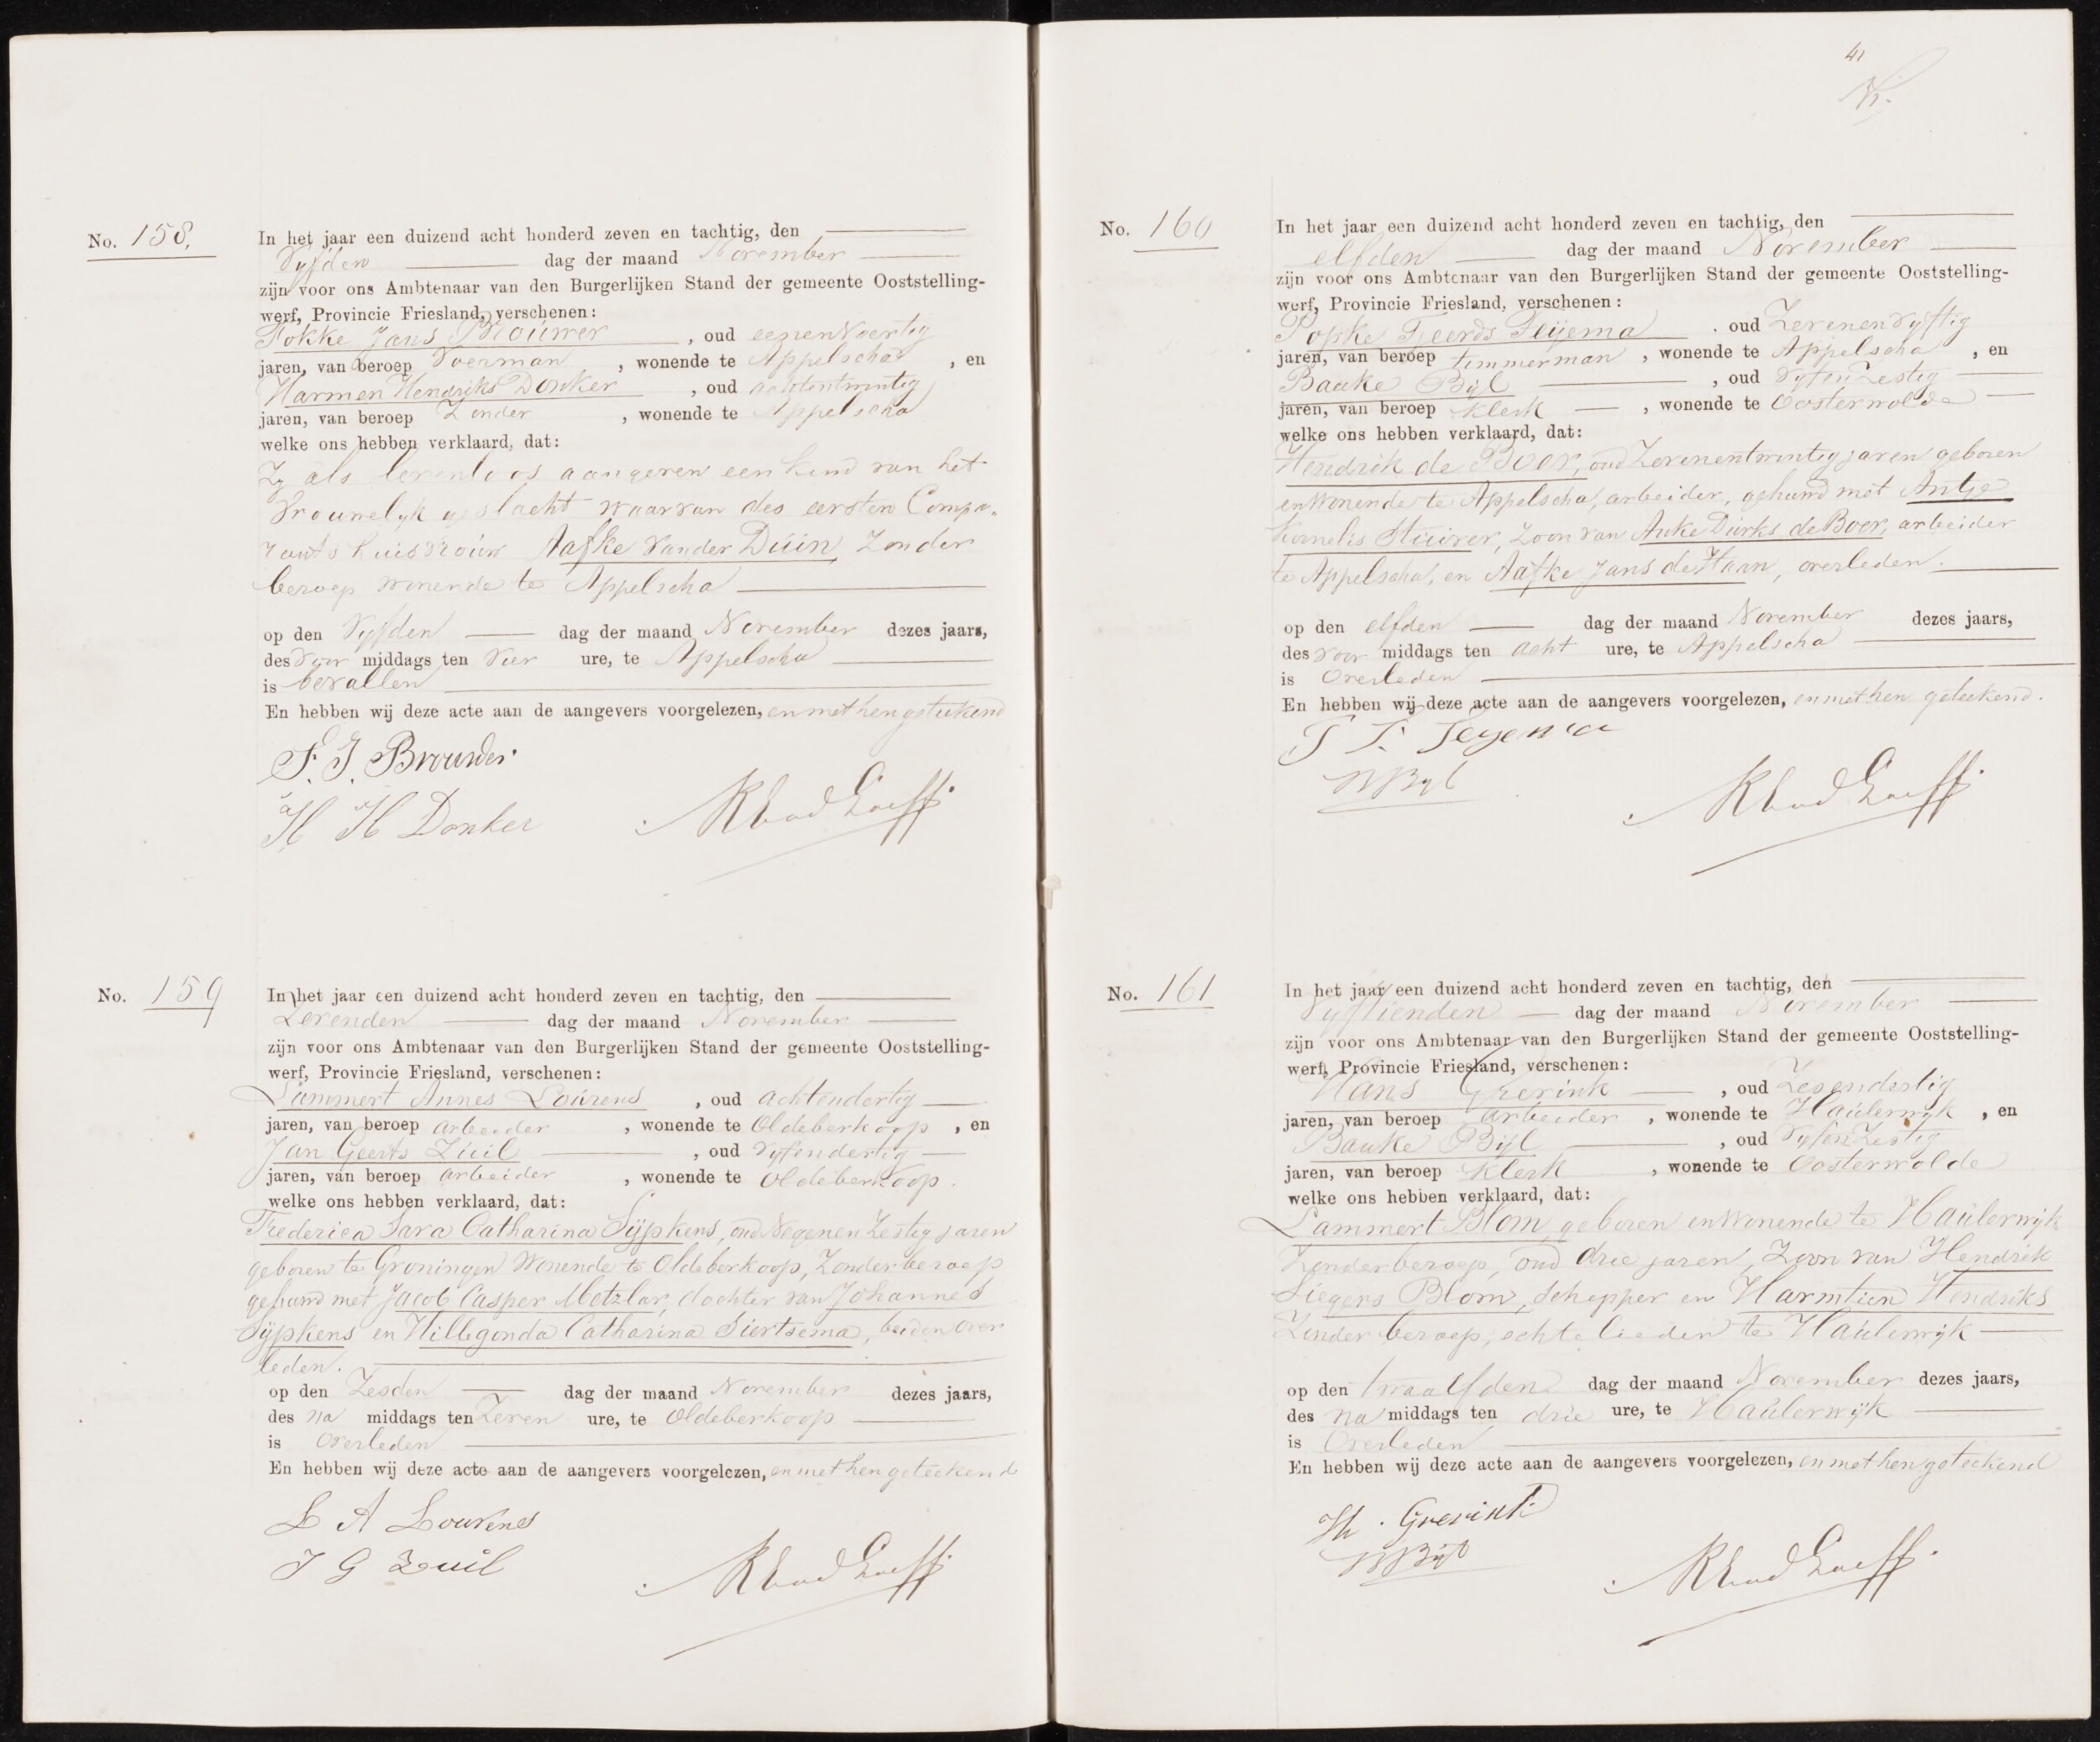 No. 158.
In het jaar een duizend acht honderd zeven en tachtig, den
Vyfden dag der maand November
zijn voor ons Ambtenaar van den Burgerlijken Stand der gemeente Ooststelling-
werf, Provincie Friesland, verschenen:
Fokke Jans Brouwer, oud eenenveertig
jaren, van beroep Voerman, wonende te Appelscha, en
Harmen Hendriks Donker, oud achtentwintig
jaren, van beroep Zonder, wonende te Appelscha
welke ons hebben verklaard, dat:
Zy als levenloos aangeven een kind van het
Vrouwelyk geslacht waarvan des eersten Compa-
rants huisvrouw Aafke van der Duin, Zonder
beroep wonende te Appelscha
op den Vyfden dag der maand November dezes jaars,
des voor middags ten vier ure, te Appelscha
is bevallen
En hebben wij deze acte aan de aangevers voorgelezen, en met hen geteekend
F. J. Brouwer
H H Donker
No. 159
In het jaar een duizend acht honderd zeven en tachtig, den
Zevenden dag der maand November
zijn voor ons Ambtenaar van den Burgerlijken Stand der gemeente Ooststelling-
werf, Provincie Friesland, verschenen:
Lammert Annes Lourens, oud achtendertig
jaren, van beroep arbeider, wonende te Oldeberkoop, en
Jan Geerts Zuil, oud vyfendertig
jaren, van beroep arbeider, wonende te Oldeberkoop.
welke ons hebben verklaard, dat:
Frederica Sara Catharina Sijpkens, oud Negenen Zestig jaren
geboren te Groningen Wonende te Oldeberkoop, Zonder beroep
gehuwd met Jacob Casper Metzlar, dochter van Johannes
Sijpkens en Hillegonda Catharina Siertsema, beiden over
leden.
op den Zesden dag der maand November dezes jaars,
des na middags ten Zeven ure, te Oldeberkoop
is Overleden
En hebben wij deze acte aan de aangevers voorgelezen, en met hen geteekend
L A Lourens
J G Zuil
41
No. 160
In het jaar een duizend acht honderd zeven en tachtig, den
elfden dag der maand November
zijn voor ons Ambtenaar van den Burgerlijken Stand der gemeente Ooststelling-
werf, Provincie Friesland, verschenen:
Popke Tjeerds Teijema, oud Zevenenvyftig
jaren, van beroep timmerman, wonende te Appelscha, en
Bauke Bijl, oud Vyfen Zestig
jaren, van beroep Klerk, wonende te Oosterwolde
welke ons hebben verklaard, dat:
Hendrik de Boer, oud Zevenentwintig jaren geboren
en Wonende te Appelscha, arbeider, gehuwd met Antje
Kornelis Stuiver, Zoon van Anke Durks de Boer, arbeider
te Appelscha, en Aafke Jans de Haan, overleden.
op den elfden dag der maand November dezes jaars,
des voor middags ten acht ure, te Appelscha
is Overleden
En hebben wij deze acte aan de aangevers voorgelezen, en met hen geteekend.
P T. Teyema
B Byl
No. 161
In het jaar een duizend acht honderd zeven en tachtig, den
Vyftienden dag der maand November
zijn voor ons Ambtenaar van den Burgerlijken Stand der gemeente Ooststelling-
werf, Provincie Friesland, verschenen:
Hans Grerink, oud Zesendertig
jaren, van beroep arbeider, wonende te Haulerwijk, en
Bauke Bijl, oud Vyfen Zestig
jaren, van beroep Klerk, wonende te Oosterwolde
welke ons hebben verklaard, dat:
Lammert Blom, geboren en Wonende te Haulerwijk
Zonder beroep, oud drie jaren, Zoon van Hendrik
Siegers Blom, Schipper en Harmtien Hendriks
Zonder beroep, echte lieden te Haulerwijk
op den twaalfden dag der maand November dezes jaars,
des na middags ten drie ure, te Haulerwijk
is Overleden
En hebben wij deze acte aan de aangevers voorgelezen, en met hen geteekend
H. Grerink
B Bijl